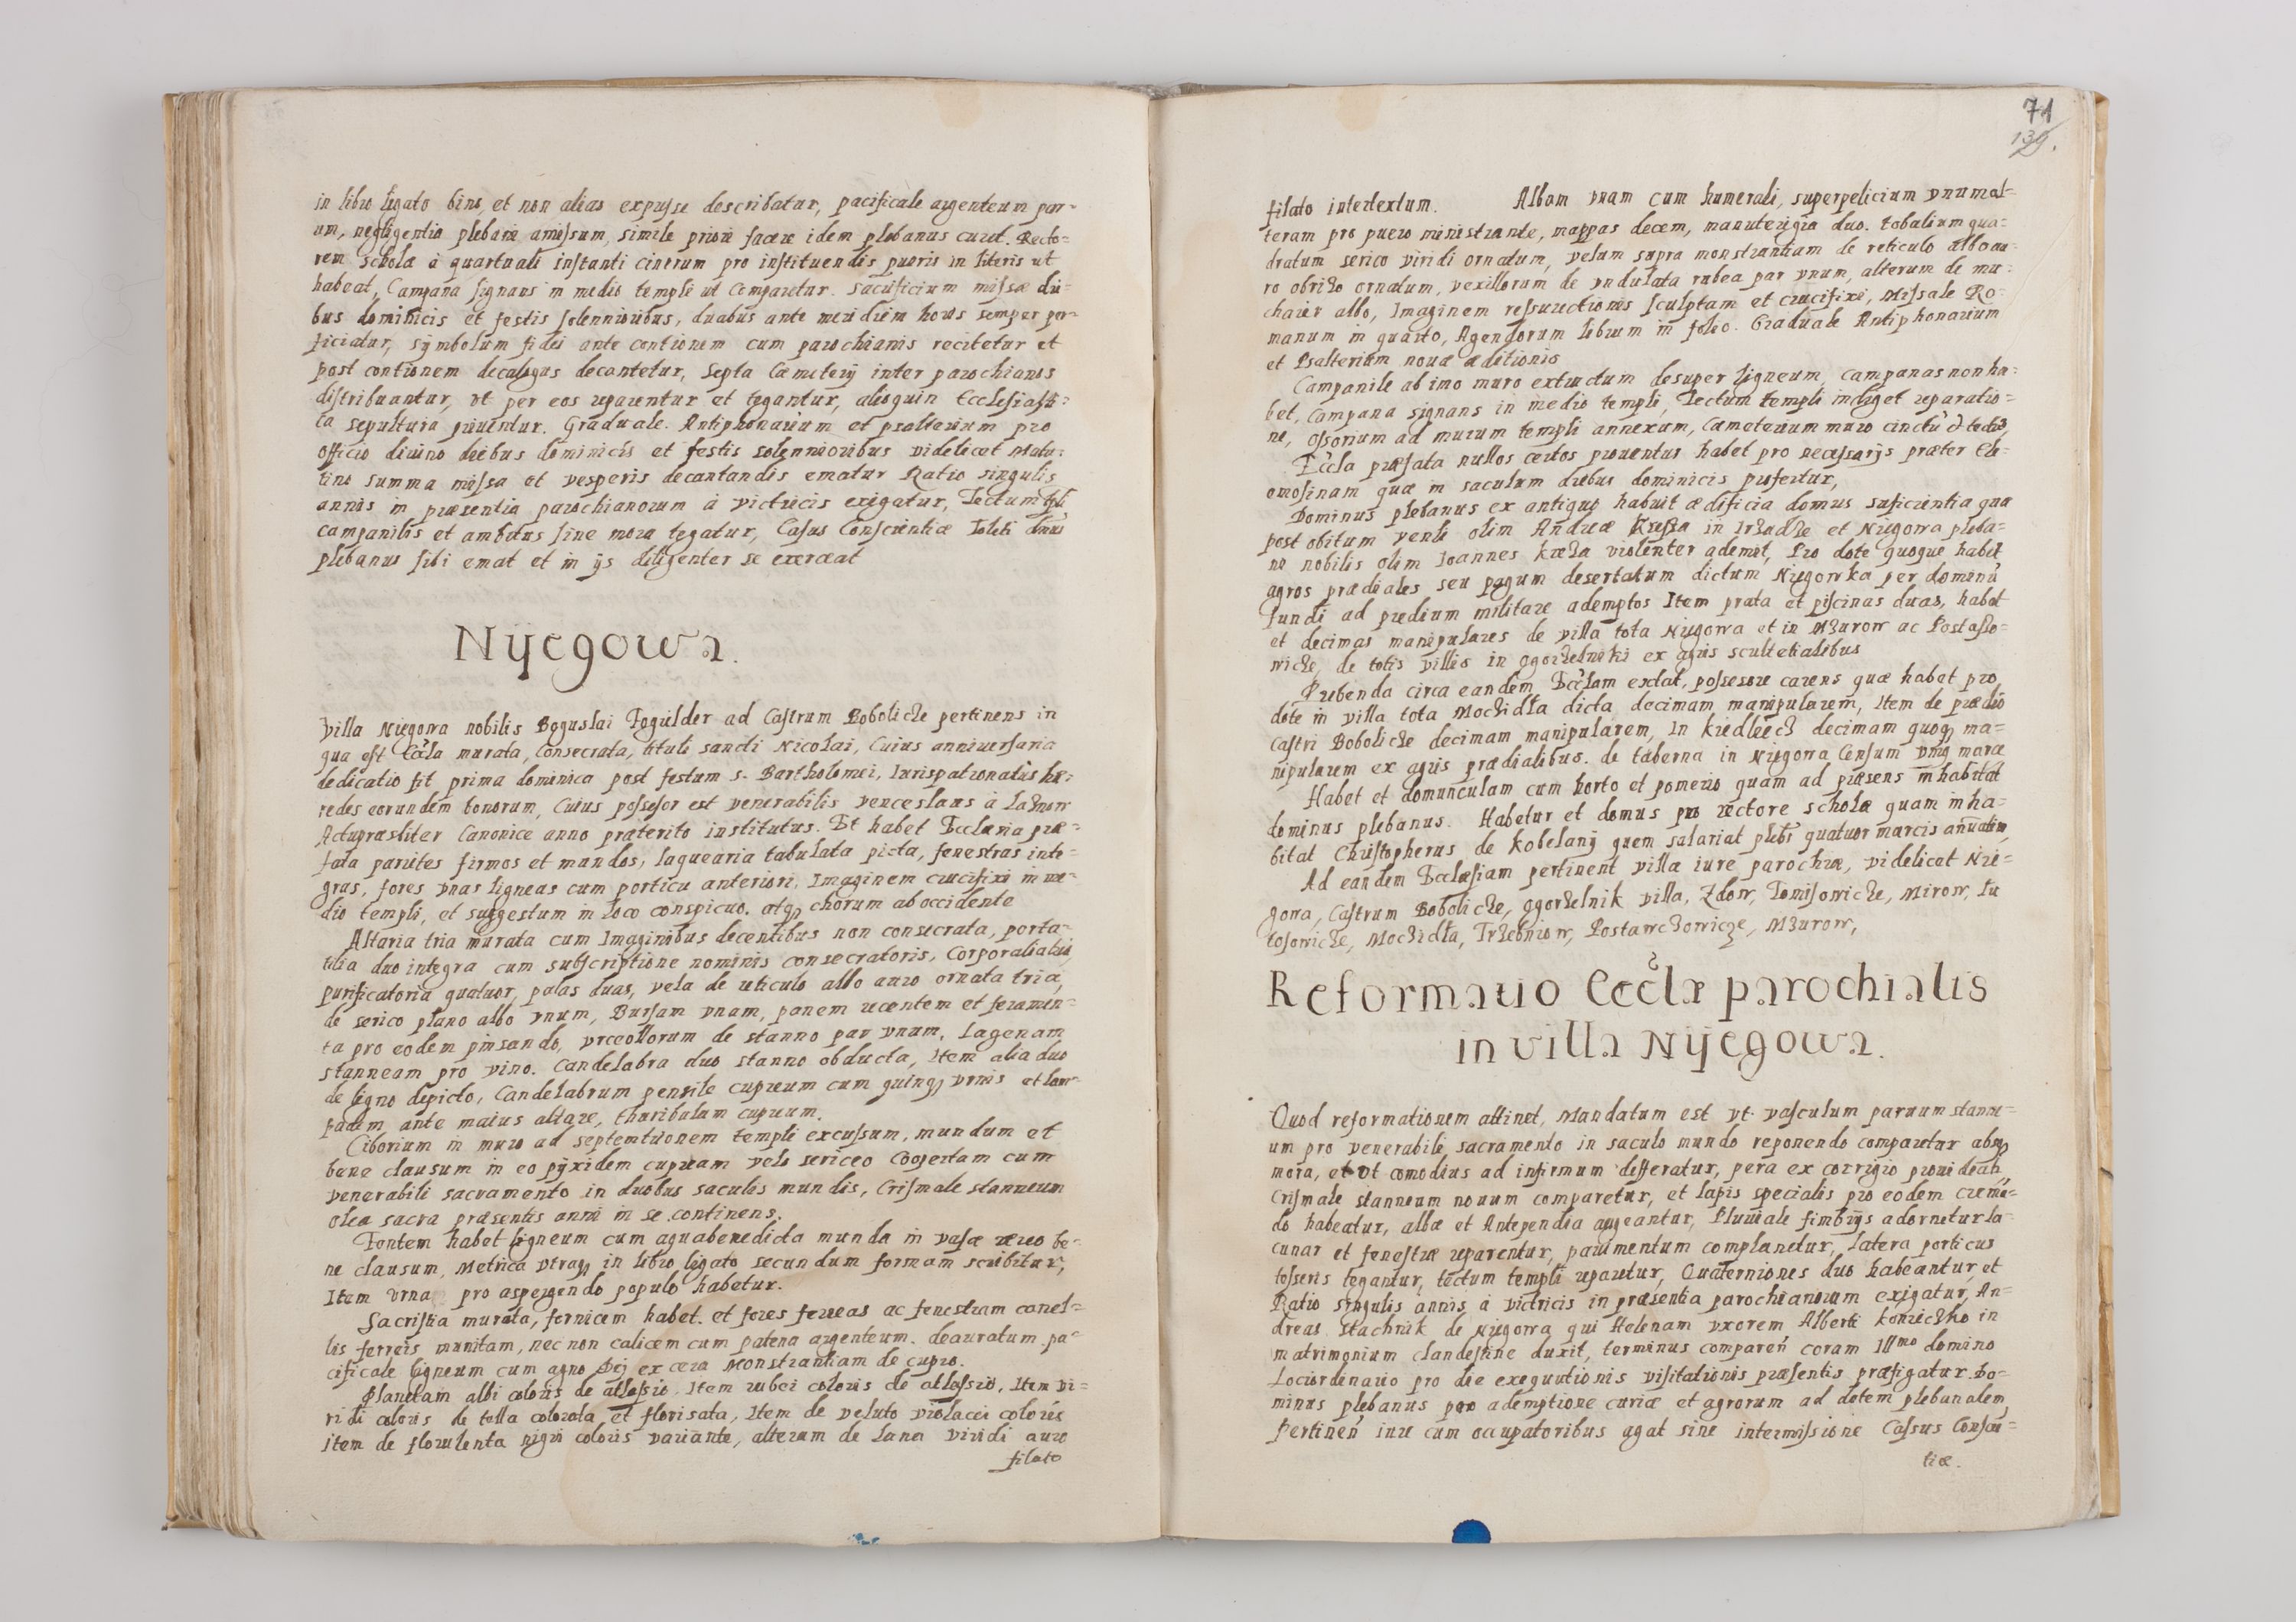 in libro ligato bino, et non alias expresse describatur, pacificale argenteum par-
um, negligentia plebani amissum, simile priori facere idem plebanus curet. Recto=
rem scholæ à quartuali instanti cinerum pro instituendis pueris in literis ut
habeat, Campana signans in medio templi ut Comparetur. Sacrificium missæ die=
bus dominicis et festis solennioribus, duabus ante meridiem horis semper per=
ficiatur, symbolum fidei ante contionem cum parochianis recitetur et
post contionem decalogus decantetur, Septa Cæmeterij inter parochianos
distribuantur, vt per eos reparentur et tegantur, alioquin Ecclesiasti=
ca sepultura priuentur. Graduale. Antiphonarium et psalterium pro
officio diuino diebus dominicis et festis solennioribus videlicet Matu=
tino summa missa et vesperis decantandis ematur Ratio singulis
annis in præsentia parochianorum à victricis exigatur, Tectum tpli
campanilis et ambitus sine mora tegatur, Casus Conscientiæ Toleti dnus
plebanus sibi emat et in ijs diligenter se exerceat
Nijegowa.
Villa Niegowa nobilis Boguslai Fogielder ad Castrum Bobolicze pertinens in
qua est Eccla murata, Consecrata, tituli sancti Nicolai, Cuius anniuersaria
dedicatio fit prima dominica post festum S. Bartholomei, Iurispatronatus hæ=
redes eorundem bonorum, Cuius possesor est venerabilis venceslaus à
Actupræsbiter Canonice anno præterito institutus. Et habet Ecclesia præ=
fata parietes firmos et mundos, laquearia tabulata picta, fenestras inte=
gras, fores vnas ligneas cum porticu anteriori, Imaginem crucifixi in me=
dio templi, et suggestum in loco conspicuo. atq chorum ab occidente
Altaria tria murata cum Imaginibus decentibus non consecrata, porta=
tilia duo integra cum subscriptione nominis consecratoris, Corporalia
purificatoria quatuor, palas duas, vela de reticulo albo auro ornata tria,
de serico plano albo vnum, Bursam vnam, panem recentem et feramen=
ta pro eodem pinsando, vrceollorum de stanno par vnum, Lagenam
stanneam pro vino. Candelabra duo stanno obducta, item alia duo
de ligno depicto, Candelabrum pensile cupreum cum quinq vrnis et lam=
padem ante maius altare, thuribulum cupreum.
Ciborium in muro ad septemtrionem templi excussum, mundum et
bene clausum in eo pyxidem cupream velo sericeo Coopertam cum
venerabili sacramento in duobus saculis mundis, Crismale stanneum
olea sacra præsentis anni in se continens.
Fontem habet ligneum cum aqua benedicta munda in vase æreo be=
ne clausum, Metrica vtraq in libro ligato secundum formam scribitur,
Item vrna pro aspergendo populo habetur.
Sacristia murata, fornicem habet. et fores ferreas ac fenestram cancel=
lis ferreis munitam, nec non calicem cum patena argenteum. deauratum. pa=
cificale ligneum cum agno Dei ex cera Monstrantiam de cupro.
Planetam albi coloris de atlassio, Item rubei coloris de atlassio, Item vi=
ridi coloris de tella colorata, et florisata, Item de veluto violacei coloris
item de florulenta nigri coloris variante, alteram de lana viridi auro
filato
71
139.
filato intertextum. Albam vnam cum humerali, superpelicium vnum al=
teram pro puero ministrante, mappas decem, manutergia duo. tobalium qua=
dratum serico viridi ornatum, velum supra monstrantiam de reticulo albo au=
ro obrizo ornatum, vexillorum de vndulata rubea par vnum, alterum de mu=
chaier albo, Imaginem ressurectionis sculptam et crucifixi, Missale Ro=
manum in quarto, Agendorum librum in folio. Graduale Antiphonarium
et Psalterium nouæ æditionis
Campanile ab imo muro extructum desuper ligneum, campanas non ha=
bet, Campana signans in medio templi, Tectum templi indiget reparatio=
ne, ossorium ad murum templi annexum, Cæmeterium muro cinctũ
Eccla præfata nullos certos prouentus habet pro necessarijs præter Ele=
omosinam quæ in saculum diebus dominicis profertur,
Dominus plebanus ex antiquo habuit ædificia domus suficientia quæ
post obitum venli olim Andreæ in Irzadze et Niegowa pleba=
no nobilis olim Ioannes violenter ademit, Pro dote quoque habet
agros prædiales seu pagum desertatum dictum Niegowka per dominũ
fundi ad predium militare ademptos Item prata et piscinas duas, habet
et decimas manipulares de villa tota Niegowa et in Mzurow ac Postaslo=
wicze, de totis villis in ogorzelniki ex agris scultetialibus
Præbenda circa eandem Ecclam extat, possesore carens quæ habet pro
dote in villa tota Moczidła dicta, decimam manipularem, Item de prædio
Castri Bobolicze decimam manipularem, In decimam quoq ma=
nipularem ex agris prædialibus. de taberna in Niegowa Censum vniq marcæ
Habet et domunculam cum horto et pomerio quam ad præsens inhabitat
dominus plebanus. Habetur et domus pro rectore scholæ quam inha=
bitat Christopherus de Kobelany quem salariat plebs quatuor marcis annuatim
Ad eandem Ecclæsiam pertinent villa iure parochiæ, videlicet Nie=
gowa, Castrum Bobolicze, Ogorzelnik villa, Zdow, Tomisowicze, Mirow, Lu
tosowicze, Moczidła, Trzebniow, Postawczowicze, Mzurow,
Reformatio Eccla parochialis
in villa Nijegowa.
Quod reformationem attinet, Mandatum est vt vasculum paruum stanne=
um pro venerabili, sacramento in saculo mundo reponendo comparetur absq
mora, et vt comodius ad infirmum defferatur, pera ex corrigio prouideatr,
Crismale stanneum nouum comparetur, et lapis specialis pro eodem crema=
do habeatur, albæ et Antependia augeantur, Pluuiale fimbrijs adornetur la=
cunar et fenestræ reparentur, pauimentum complanetur, latera porticus
tosseris tegantur, tectum templi reparetur, Quaterniones duo habeantur, et
Ratio singulis annis à victricis in præsentia parochianorum exigatur, An=
dreas Stachnik de Niegowa qui Helenam vxorem Alberti Konieczko in
matrimonium clandestine duxit, terminus comparen coram Illmo domino
Lociordinario pro die exequutionis visitationis præsentis præfigatur. Do=
minus plebanus pro ademptione curiæ et agrorum ad dotem plebanalem
Pertinen iure cum occupatoribus agat sine intermissione Cassus Conscien=
tiæ.